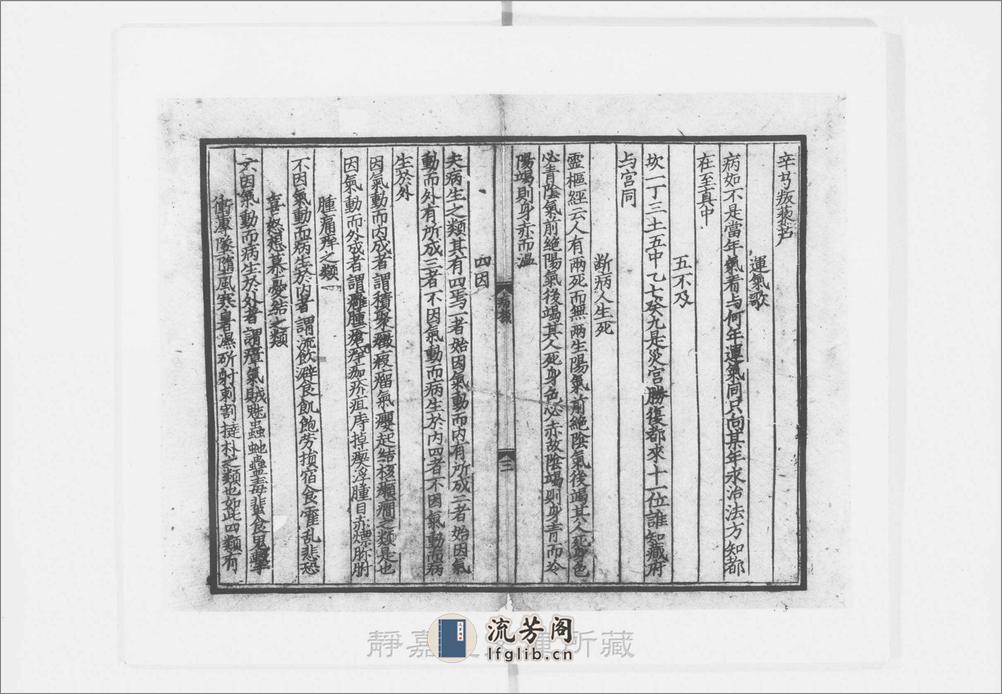 辛芍叛藜芦
運氣歌
病如不是當年氣看与何年運氣同只向某年求治法方知都
在至真中
五不及
坎一丁三土五中乙七癸九是災宮勝復都來十一位誰知藏府
与宮同
断病人生死
靈樞經云人有兩死而無兩生陽氣前絶陰氣後竭其人死身色
必青陰氣前絶陽氣後竭其人死身色必赤故陰竭則身青而冷
陽竭則身赤而溫
四因
夫病生之類其有四焉一者始因氣動而内有所成二者始因氣
動而外有所成三者不因氣動而病生於内四者不因氣動而病
生於外
因氣動而内成者謂積聚癥瘕瘤氣癭起結核癲癇之類是也
因氣動而外成者謂癰腫瘡瘍疥疽痔掉瘈浮腫目赤熛胗胕
腫痛痒之類
不因氣動而病生於内者謂流飲澼食飢飽労損宿食霍乱悲恐
喜怒想慕憂結之類
不因氣動而病生於外者謂瘴氣賊魅蟲蛇蠱毒蜚食鬼擊
衝薄墜墮風寒暑濕所射刺割捶朴之類也如此四類有
三
靜嘉 所藏
流芳阁
lfglib.cn